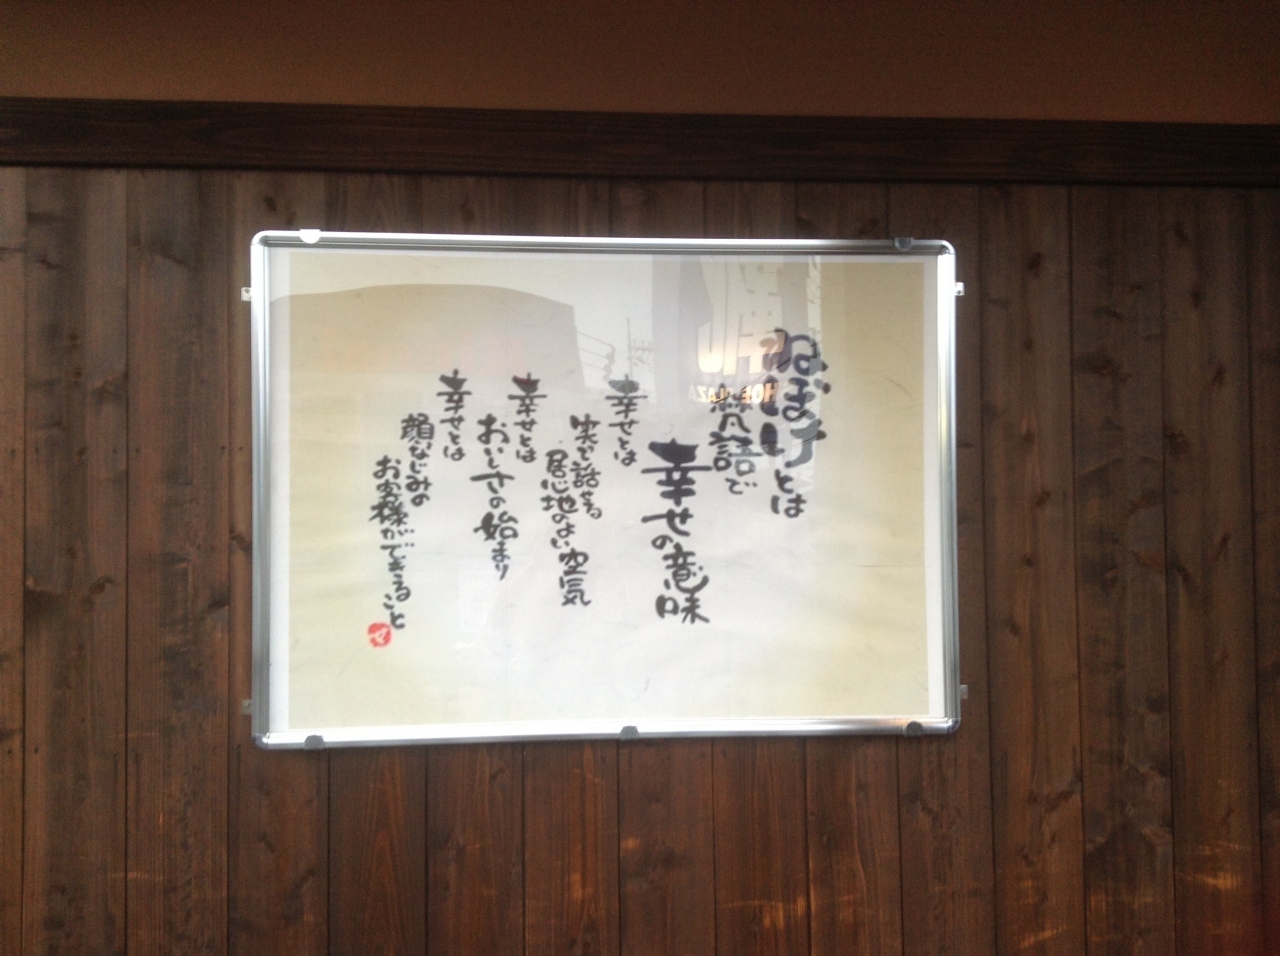 ねぼけとは
梵語で
幸せの意味
幸せとは
話せる
居心地のよい空気
幸せとは
おいしさの始まり
幸せとは
顔なじみの
お客様ができること